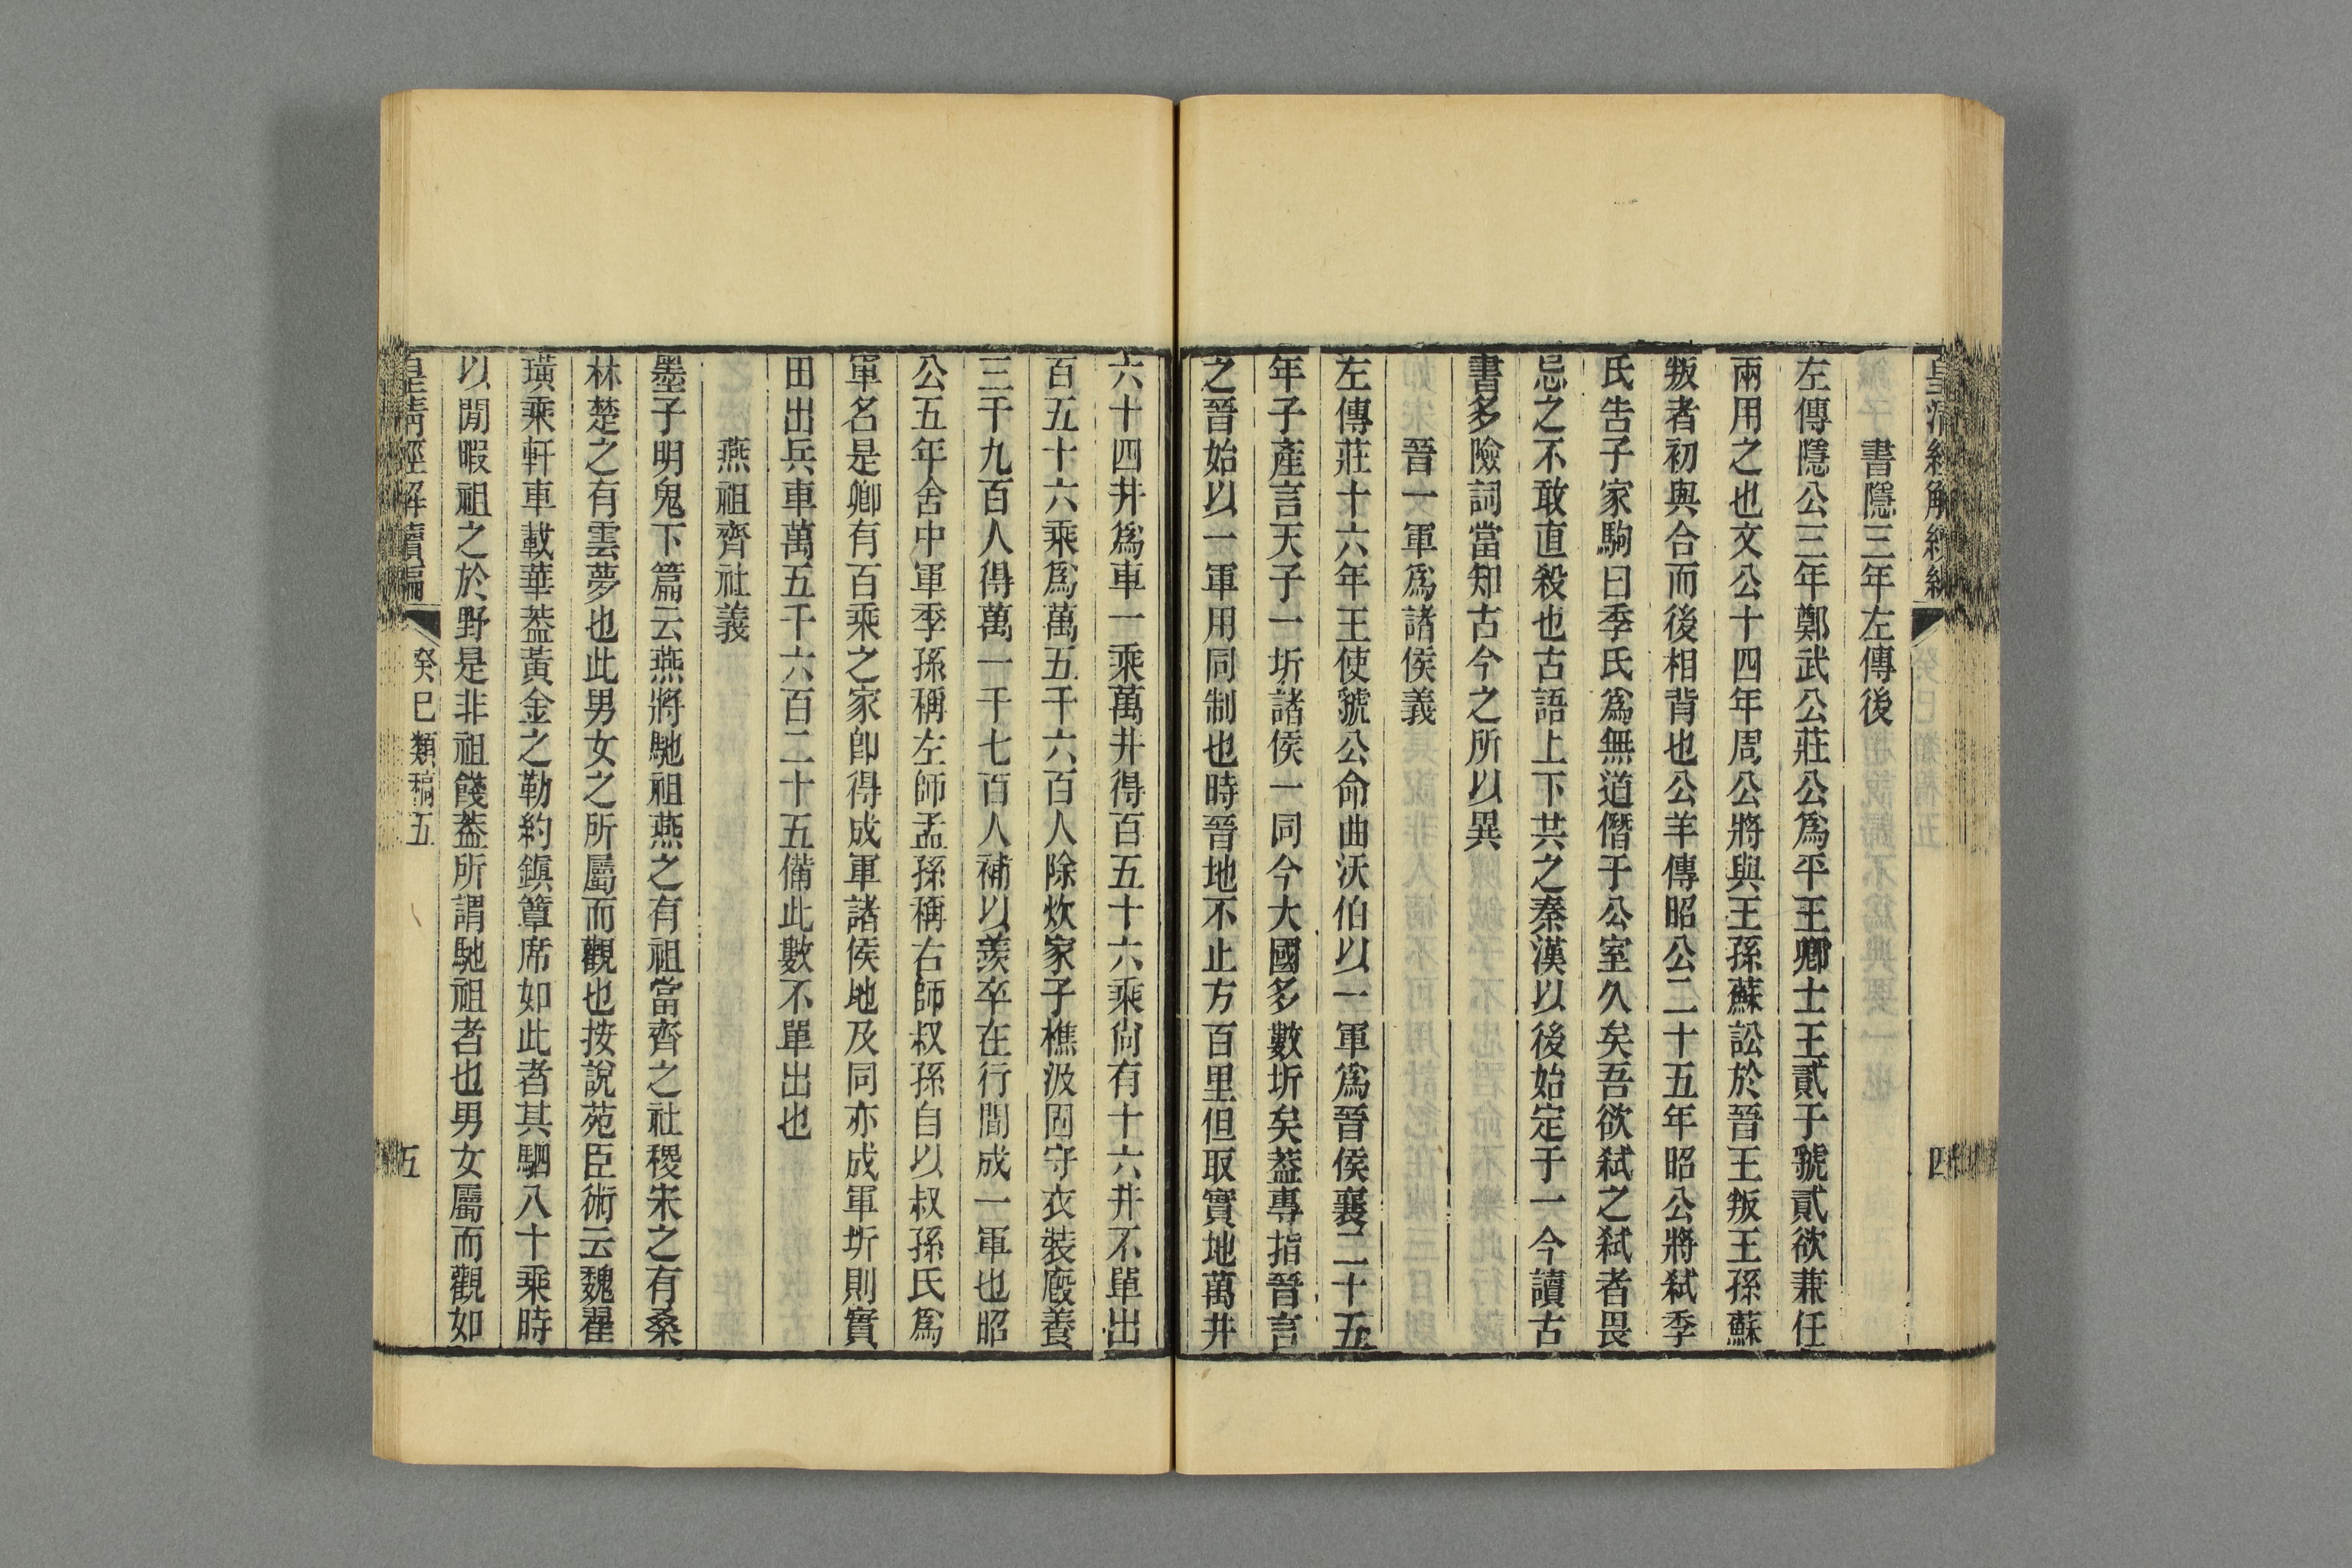 皇清經解續編
四
書隱三年左傳後
左傳隱公三年鄭武公莊公爲平王卿士王貳于虢貳欲兼任
兩用之也文公十四年周公將與王孫蘇訟於晉王叛王孫蘇
叛者初與合而後相背也公羊傳昭公二十五年昭公將弑季
氏告子家駒曰季氏爲無道僭于公室久矣吾欲弑之弑者畏
忌之不敢直殺也古語上下共之秦漢以後始定于一今讀古
書多險詞當知古今之所以異
晉一軍爲諸侯義
左傳莊十六年王使虢公命曲沃伯以一軍爲晉侯襄二十五
年子產言天子一圻諸侯一同今大國多數圻矣葢專指晉言
之晉始以一軍用同制也時晉地不止方百里但取實地萬井
六十四井爲車一乘萬井得百五十六乘尙有十六井不單出
百五十六乘爲萬五千六百人除炊家子樵汲固守衣裝廄養
三千九百人得萬一千七百人補以羨卒在行閒成一軍也昭
公五年舍中軍季孫稱左師孟孫稱右師叔孫自以叔孫氏爲
軍名是卿有百乘之家卽得成軍諸侯地及同亦成軍圻則實
田出兵車萬五千六百二十五備此數不單出也
燕祖齊社義
墨子明鬼下篇云燕將馳祖燕之有祖當齊之社稷宋之有桑
林楚之有雲夢也此男女之所屬而觀也按說苑臣術云魏翟
璜乘軒車載華葢黃金之勒約鎭簟席如此者其駟八十乘時
以閒暇祖之於野是非祖餞葢所謂馳祖者也男女屬而觀如
皇清經解續編
癸巳類稿五
五